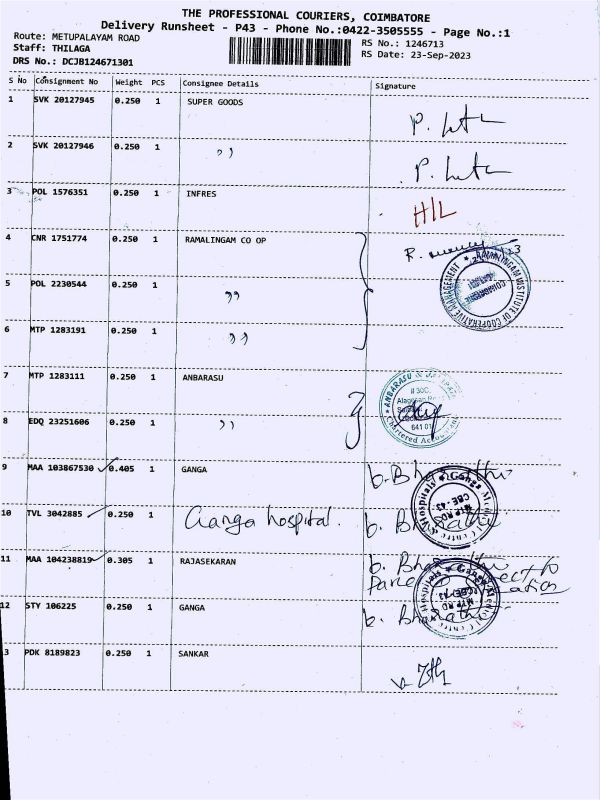 THE PROFESSIONAL COURIERS, COIMBATORE
Delivery Runsheet - P43 - Phone No.:0422-3505555 - Page No.:1
Route: METUPALAYAM ROAD
Staff: THILAGA
DRS No.: DCJB124671301
RS No.: 1246713
RS Date: 23-Sep-2023
S No Consignment No Weight PCS Consignee Details Signature
1 SVK 20127945 0.250 1 SUPER GOODS
2 SVK 20127946 0.250 1 ,,
3 POL 1576351 0.250 1 INFRES H/L
4 CNR 1751774 0.250 1 RAMALINGAM CO OP
5 POL 2230544 0.250 1 ,,
6 MTP 1283191 0.250 1 ,,
RAMALINGAM INSTITUTE OF CO-OPERATIVE MANAGEMENT
COIMBATORE
7 MTP 1283111 0.250 1 ANBARASU
8 EDQ 23251606 0.250 1 ,,
ANBARASU &
# 30C,
Chartered Accountants
9 MAA 103867530 0.405 1 GANGA b. Bharathi
10 TVL 3042885 0.250 1 Ganga hospital. b. Bharathi
Ganga Medical Centre & Hospitals
MTP RD
CBE-43
11 MAA 104238819 0.305 1 RAJASEKARAN b. Bharathi
Ganga Medical Centre & Hospitals
MTP RD
CBE-43
12 STY 106225 0.250 1 GANGA b. Bharathi
13 PDK 8189823 0.250 1 SANKAR